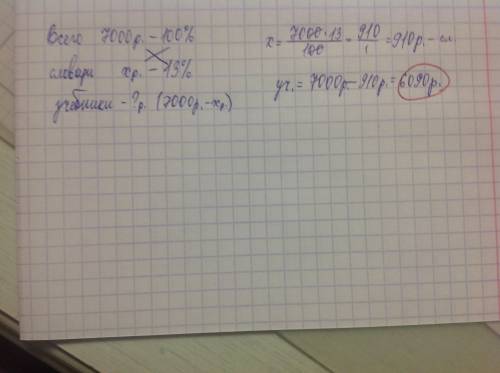 Всего 7000р. - 100%
словари хр. - 13%
учебники - ?р. (7000р. - хр.)
х = 7000 · 13 / 100 = 910 / 1 = 910р. - сл.
уч. = 7000р. - 910р. = 6090р.